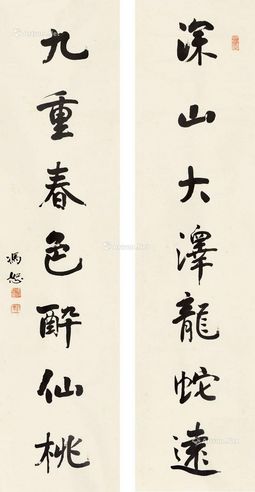 深山大澤龍蛇遠
九重春色醉仙桃
馮恕